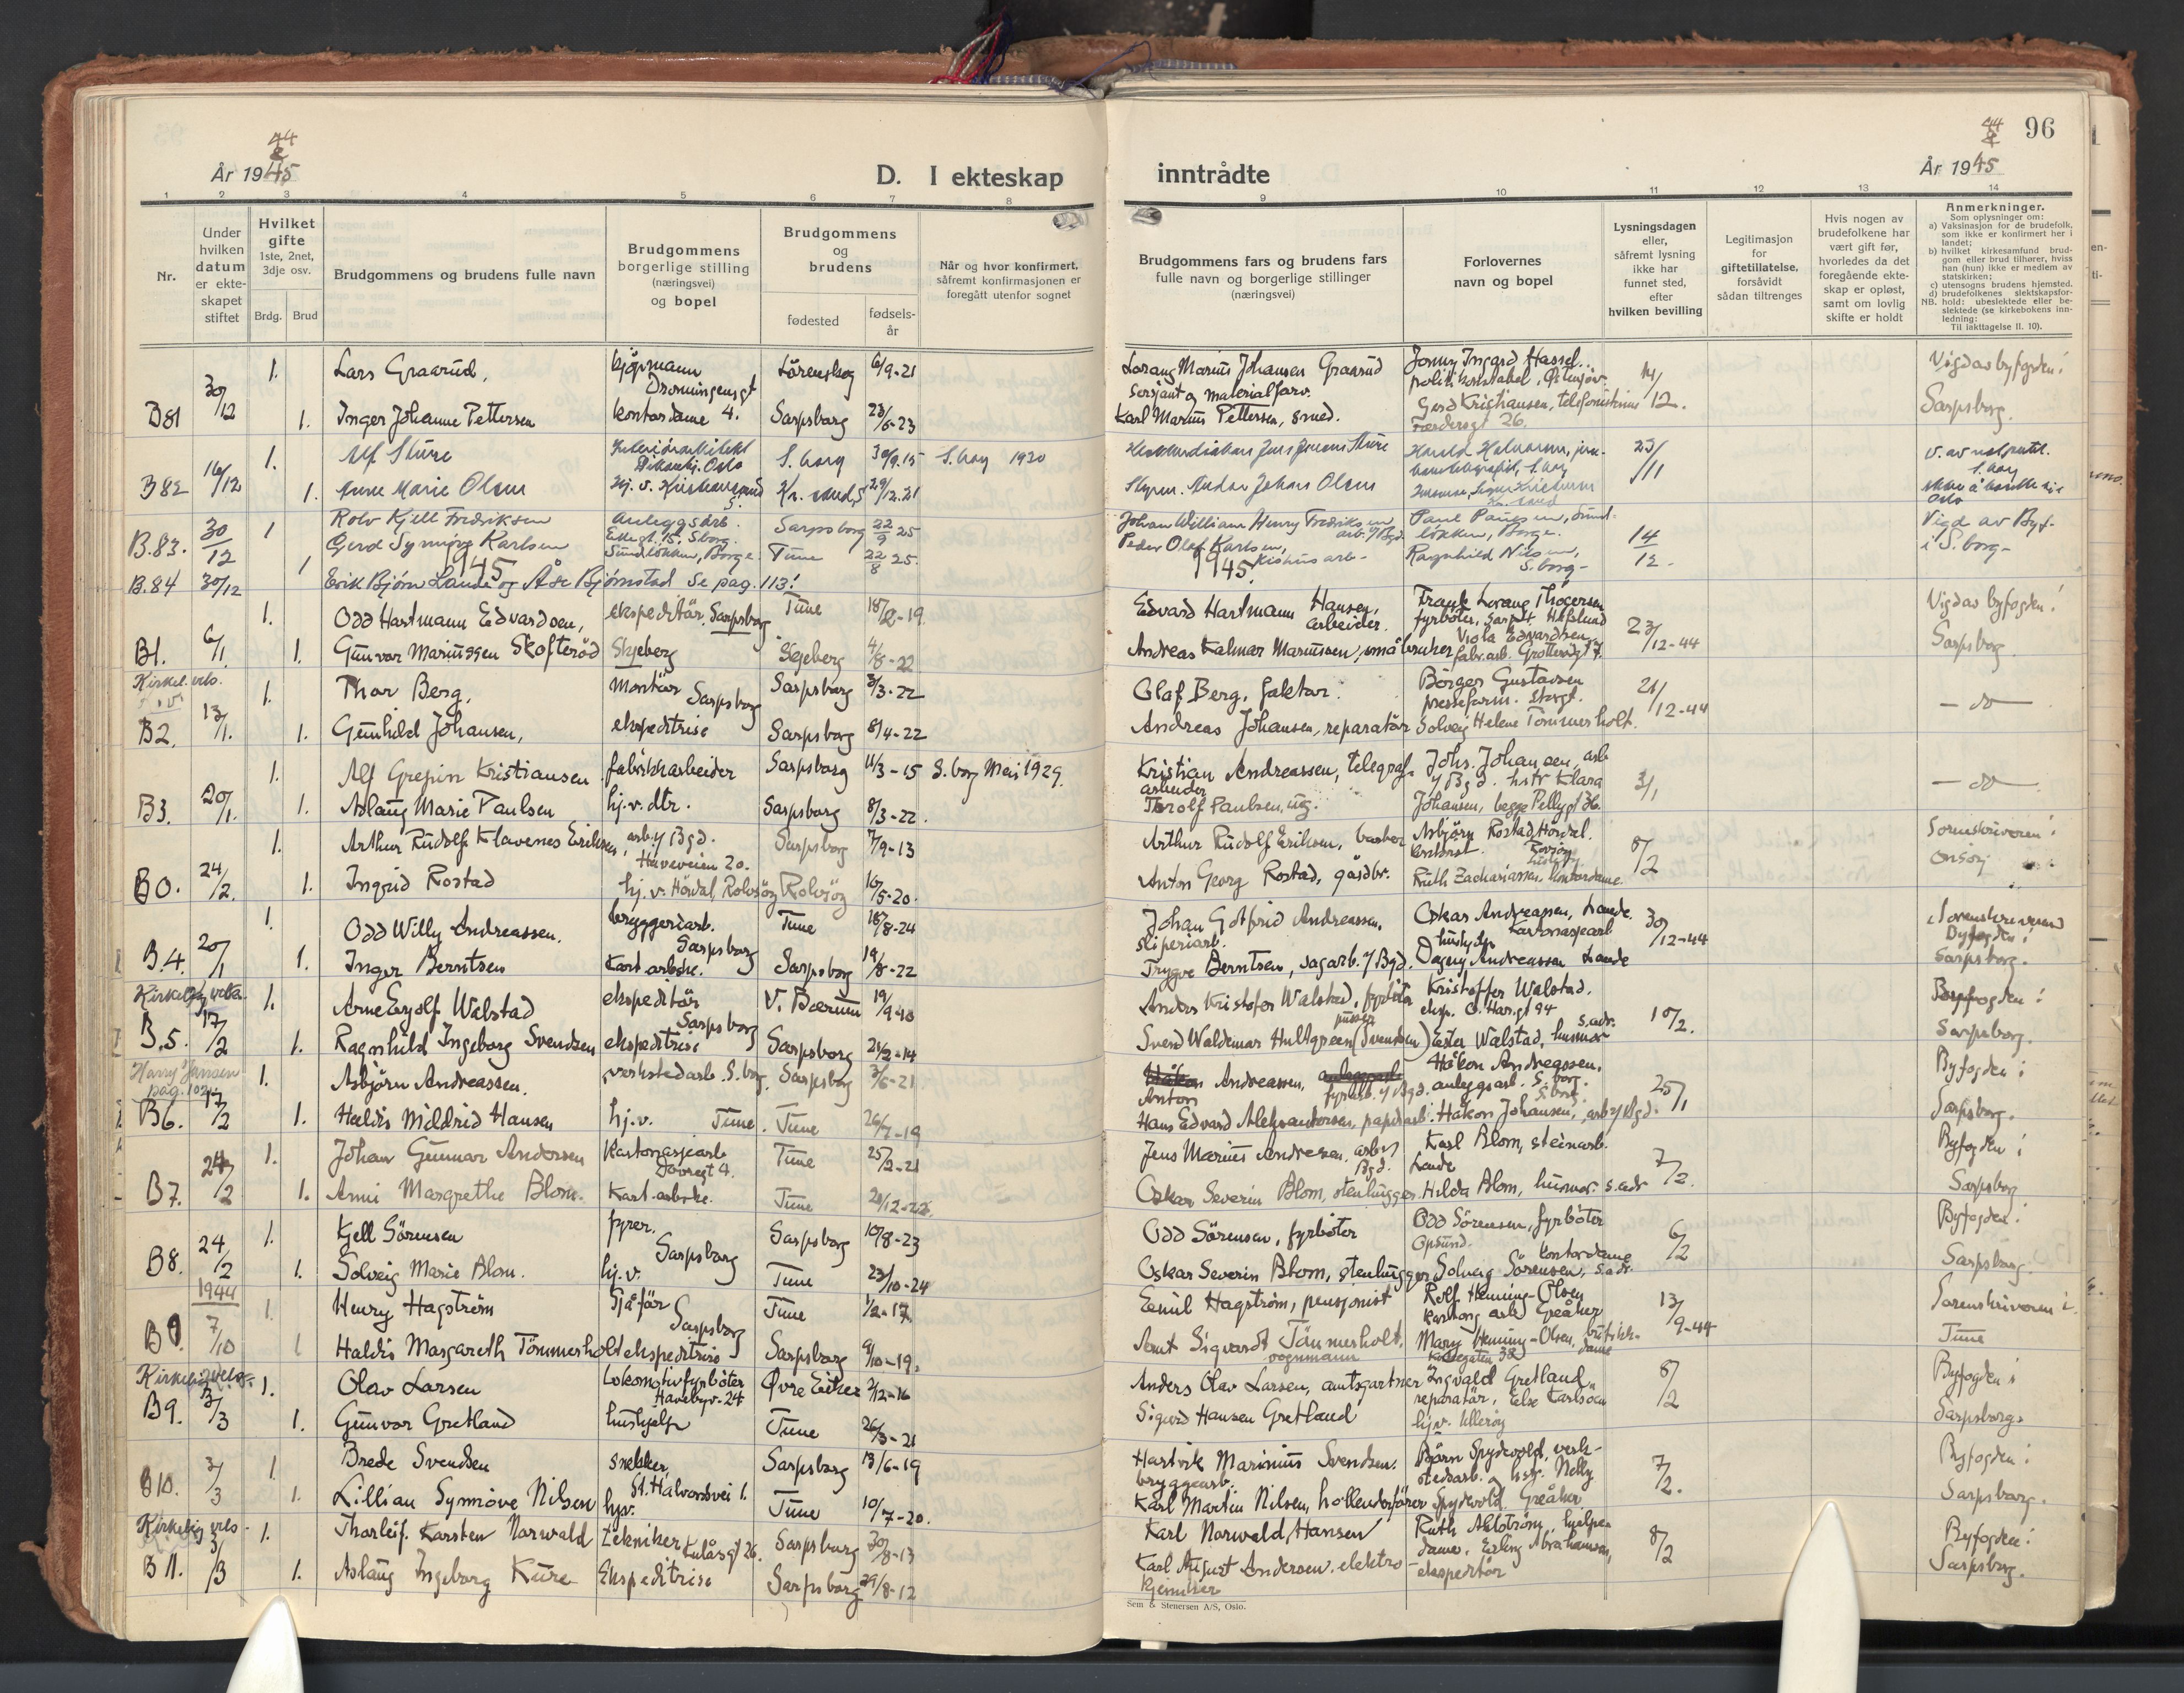 44
&
År 1945
D. I ekteskap
1 2 3 4 5 6 7 8
Nr.
Under hvilken datum er ekteskapet stiftet
Hvilket gifte
1ste, 2net, 3dje osv.
Brdg. Brud
Brudgommens og brudens fulle navn
Brudgommens borgerlige stilling (næringsvei) og bopel
Brudgommens og brudens
fødested
fødselsår
Når og hvor konfirmert, såfremt konfirmasjonen er foregått utenfor sognet
B81 30/12 1. Lars Graarud, kjøpmann Lörenskog 6/9-21
Dronningensgt
1. Inger Johanne Pettersen kontordame 4. Sarpsborg 23/6-23
B82 16/12 1. Alf Sture Interiörarkitekt S.borg 30/9.15 S.borg 1930
Oslo
1. Anne Marie Olsen hj. v. Kristiansund Kr.sund S 29/12.21
B.83. 30/12 1 Rolv Kjell Fredriksen anleggsarb. Sarpsborg 22/9 25
15. S.borg.
1 Gerd Synnöve Karlsen Sundlökken, Borge. Tune 22/8 25.
1945
B.84 30/12 Erik Bjørn Lande og Åse Bjørnstad Se pag. 113!
B1. 6/1 1. Odd Hartmann Edvardsen, ekspeditör, Sarpsborg Tune 18/2-19.
1. Gunvor Mariussen Skofteröd Skjeberg Skjeberg 4/8-22
Kirkel. vels.
B2. 13/1. 1. Thor Berg, Montör Sarpsborg Sarpsborg 3/3-22
1. Gunhild Johansen, ekspeditrise Sarpsborg 8/4-22
B3. 20/1. 1. Alf Grepin Kristiansen fabrikkarbeider Sarpsborg 11/3-15 S.borg Mai 1929.
1. Aslaug Marie Paulsen hj.v. dtr. Sarpsborg 8/3-22.
B0. 24/2. 1. Arthur Rudolf Klavenes Eriksen, arb. y Bgd. Sarpsborg 7/9-13
Haveveien 20.
1. Ingrid Rostad hj. v. Hördal, Rolvsöy Rolvsöy 16/5-20.
B.4. 20/1 1. Odd Willy Andreassen. bryggeriarb. Tune 18/8-24
Sarpsborg
1. Inger Berntsen Kart.arbske. Sarpsborg 19/8-22
Kirkelig vels.
B.5. 17/2 1. Arne Eyolf Walstad ekspeditör V. Bærum 19/9-10
Sarpsborg
1. Ragnhild Ingeborg Svendsen ekspeditrise Sarpsborg 21/2-14
Harry Jansen
pag. 102.
B6. 17/2 1. Asbjörn Andreassen. verkstedarb. S.borg. Sarpsborg 3/6-21
1. Haldis Mildrid Hansen hj.v. Tune. Tune 26/7-19
B7. 24/2 1. Johan Gunnar Andersen Kartonasjearb. Tune 25/2-21
1. Anni Margrethe Blom. Kart.arbske. Tune 20/12-22.
B8. 24/2 1. Kjell Sörensen fyrer. Sarpsborg 10/8-23
Sarpsborg
1. Solveig Marie Blom. hj.v. Tune 23/10-24
1944
B9. 7/10 1. Henry Hagström Sjåför Tune 1/2-17.
Sarpsborg
1 Haldis Margareth Tömmerholt ekspeditrise Sarpsborg 9/10-19.
Kirkelig vels.
B9. 3/3 1. Olav Larsen Lokomotivfyrböter Øvre Eiker 2/12-16
Havebyv.-24
1. Gunvor Gretland hushjelp Tune 26/3-21
B10. 3/3 1. Brede Svendsen snekker, Sarpsborg 13/6-19
St. Halvardsvei 1.
1. Lillian Synnöve Nilsen hjv. Tune 10/7-20.
Kirkelig vels.
B11. 3/3 1. Thorleif Karsten Norwald tekniker Kulåsgt 26. Sarpsborg 30/8-13
1. Aslaug Ingeborg Kure Ekspeditrise Sarpsborg 29/8-12
44
&
96
inntrådte
År 1945
9 10 11 12 13 14
Brudgommens fars og brudens fars fulle navn og borgerlige stillinger (næringsvei)
Forlovernes navn og bopel
Lysningsdagen eller, såfremt lysning ikke har funnet sted, efter hvilken bevilling
Legitimasjon for giftetillatelse, forsåvidt sådan tiltrenges
Hvis nogen av brudefolkene har vært gift før, hvorledes da det foregående ekteskap er opløst, samt om lovlig skifte er holdt
Anmerkninger.
Som oplysninger om:
a) Vaksinasjon for de brudefolk, som ikke er konfirmert her i landet;
b) hvilket kirkesamfund brudgom eller brud tilhører, hviss han (hun) ikke er medlem av statskirken;
c) utensogns brudens hjemsted.
d) brudefolkenes slektskapsforhold: ubeslektede eller beslektede (se kirkebokens innledning:
NB.
Til iakttagelse II. 10).
Lorang Marius Johansen Graarud Jonny Ingard Hassel. 14/12. Vigd av byfogden i
Sersjant og materialforv. politikonstabel,
Karl Marius Pettersen, smed. Gerd Kristiansen, telefonistinne Sarpsborg.
Færdersgt 26.
Jens Sture Harald Halvorsen, 23/11 v. av
S.borg
Skipm. Anton Johans Olsen
Oslo
Johan William Henry Fredriksen Paul Paulsen, Sund- 14/12. Vigd av Byf.
arb. y Bgd. lökken, Borge.
Peder Olaf Karlsen, Ragnhild Nilsen, i S.borg-
1945. S.borg-
Edvard Hartmann Hansen, Frank Lorang Thogersen 23/12-44 Vigd av byfogden i
arbeider. fyrböter, Hafslund
Andreas Kalmar Mariussen, småbruker Viola Edvardsen Sarpsborg.
fabr.arb. Grottevgt 7.
Olaf Berg, faktor. Börger Gustavsen 21/12-44 - do -
presseform. Storgt.
Andreas Johansen, reparatör Solveig Helene Tommerholt.
Kristian Andreassen, telegraf- Johs. Johansen, arb. 3/1 - do -
arbeider y Bgd. hstr Klara
Torolf Paulsen, Johansen, begge Pellygt 36.
Arthur Rudolf Eriksen, barber Asbjörn Rostad, Hördal. 8/2 Sorenskriveren i
kontorist Rolvsöy
Anton Georg Rostad, gårdbr. Ruth Zachariassen, kontordame. Onsöy
Johan Gotfrid Andreassen, Oskar Andreassen, Lande. 30/12-44 Sorenskriveren
sliperiarb. kartonasjearb Byfogden i
Trygve Berntsen, sagarb. y Bgd. Dagny Andreassen Lande Sarpsborg.
Anders Kristofer Walstad, fyrböter Kristoffer Walstad. 10/2. Byfogden i
pusser eksp. O. Har.gt 94
Svend Waldemar Hultgreen (Svendsen) Ester Walstad, husmor s.adr. Sarpsborg.
Håkon Andreassen, anleggsarb Håkon Andreassen, 25/1 Byfogden i
Anton fyrarb. y Bgd. anleggsarb. S.borg.
Hans Edvard Aleksandersen, papirarb. Håkon Johansen, arb y Bgd. Sarpsborg.
Jens Marius Andresen, arb y Karl Blom, steinarb. 7/2. Byfogden i
Bgd. Lande
Oskar Severin Blom, stenhugger. Hilda Blom, husmor. s.adr Sarpsborg
Odd Sörensen, fyrböter Odd Sörensen, fyrböter 6/2 Byfogden i
Opsund. kontordame
Oskar Severin Blom, stenhugger Solveig Sörensen, s.adr. Sarpsborg.
Emil Hagström, pensjonist Rolf Henning-Olsen 13/9-44 Sorenskriveren i
kartong arb Greåker
Arnt Sigvardt Tömmerholt, Mary Henning-Olsen, butikk- Tune
vognmann dame
Anders Olav Larsen, amtsgartner Ingvald Gretland 8/2 Byfogden i
reparatör, Else Karlsen
Sigurd Hansen Gretland hjv. Ullerøy Sarpsborg.
Hartvik Marinius Svendsen. Björn Spydevold, verk- 7/2. Byfogden i
bryggearb. stedsarb. og hstr. Nelly
Karl Martin Nilsen, hollenderförer Spydevold. Greåker Sarpsborg.
Karl Norwald Hansen Ruth Ahlström, hjelpe- 8/2 Byfogden i
dame, Erling Abrahamsen,
Karl August Andersen, elektro- ekspeditör Sarpsborg.
kjemiker
Sem & Stenersen A/S, Oslo.